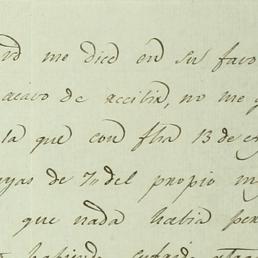 me dice en su favo
acavo de accibir, no me
la que con fha 13 de en
yas de 7„ del propio m
que nada havia per